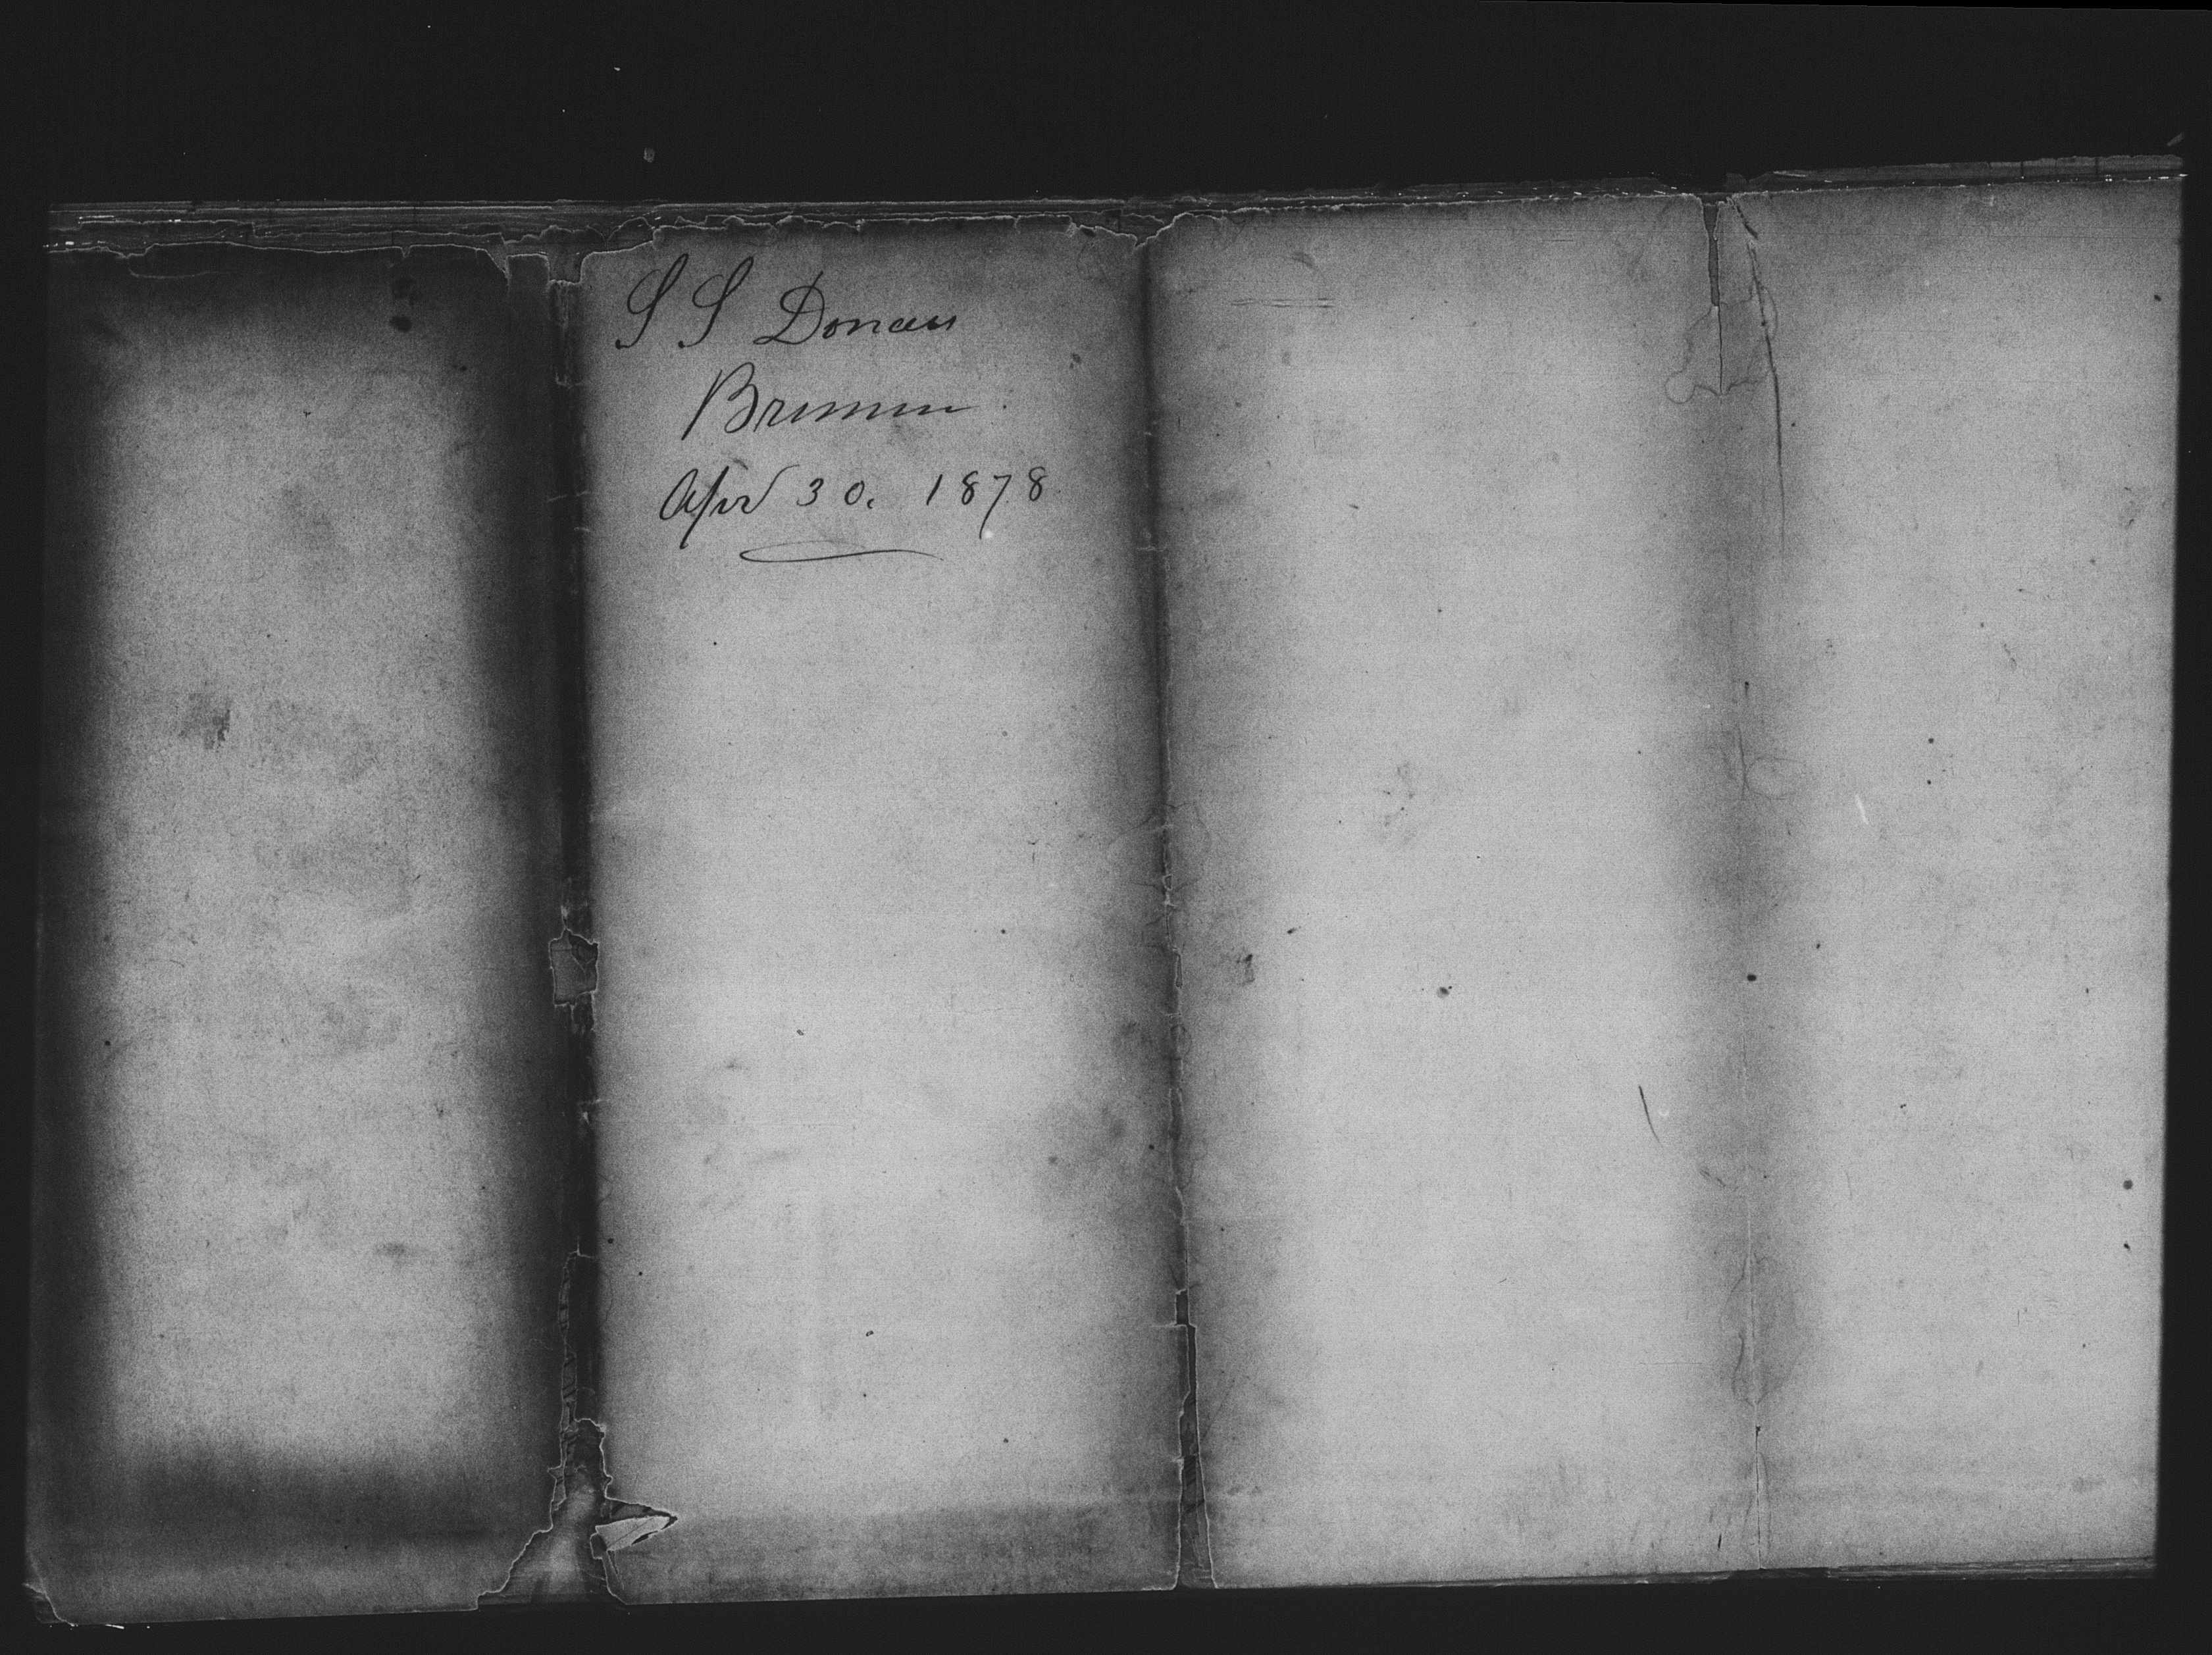 S S Donau
Bremen
Apr 30. 1878